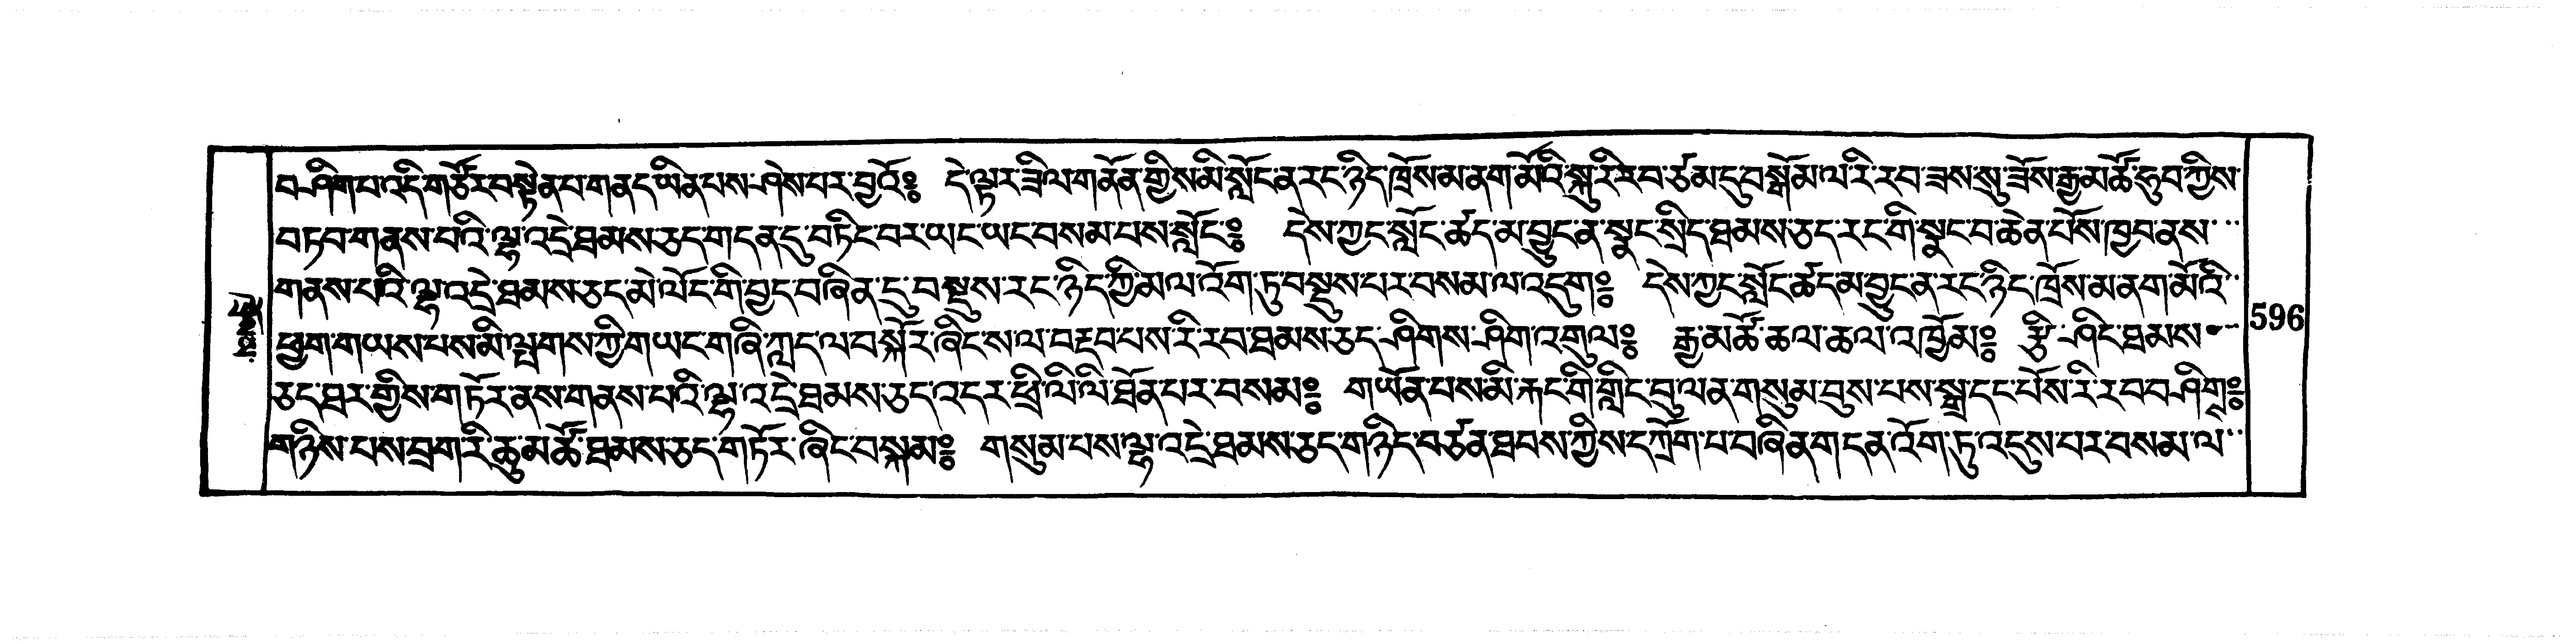 བཤིག་པ་འདི་གཙོར་བསྟེན་པ་གནད་ཡིན་པས་ཤེས་པར་བྱའོ༔ དེ་ལྟར་ཟིལ་གནོན་གྱིས་མི་སློང་ན་རང་ཉིད་ཁྲོས་མ་ནག་མོའི་སྐུ་རི་རབ་ཙམ་དུ་བསྒོམ་ལ་རི་རབ་ཟས་སུ་ཟོས་རྒྱ་མཚོ་ཧུབ་ཀྱིས་
བཏབ་གནས་པའི་ལྷ་འདྲེ་ཐམས་ཅད་གདན་དུ་བཏིང་བར་ཡང་ཡང་བསམ་པས་སློང་༔ དེས་ཀྱང་སློང་ཚད་མ་བྱུང་ན་སྣང་སྲིད་ཐམས་ཅད་རང་གི་སྣང་བ་ཆེན་པོས་ཁྱབ་ནས་
གནས་པའི་ལྷ་འདྲེ་ཐམས་ཅད་མེ་ལོང་གི་བྱད་བཞིན་དུ་བསྡུས་རང་ཉིད་ཀྱི་མལ་འོག་ཏུ་བསྡུས་པར་བསམ་ལ་འདུག༔ དེས་ཀྱང་སློང་ཚད་མ་བྱུང་ན་རང་ཉིད་ཁྲོས་མ་ནག་མོའི་
ཕྱག་གཡས་པས་མི་ལྤགས་ཀྱི་གཡང་གཞི་ཀླད་ལ་བསྐོར་ཞིང་ས་ལ་བརྡབ་པས་རི་རབ་ཐམས་ཅད་ཤིགས་ཤིག་འགུལ༔ རྒྱ་མཚོ་ཆལ་ཆལ་འཁྱོམ༔ རྩི་ཤིང་ཐམས་
ཅད་ཐར་གྱིས་གཏོར་ནས་གནས་པའི་ལྷ་འདྲེ་ཐམས་ཅད་འདར་ཕྲི་ལི་ལི་ཐོན་པར་བསམ༔ གཡོན་པས་མི་རྐང་གི་གླིང་བུ་ལན་གསུམ་བུས་པས་སྒྲ་དང་པོས་རི་རབ་བཤིག༔
གཉིས་པས་བྲག་རི་ཆུ་མཚོ་ཐམས་ཅད་གཏོར་ཞིང་བསྐམ༔ གསུམ་པས་ལྷ་འདྲེ་ཐམས་ཅད་གཉིད་བཙན་ཐབས་ཀྱིས་དཀྲོག་པ་བཞིན་གདན་འོག་ཏུ་འདུས་པར་བསམ་ལ་
596